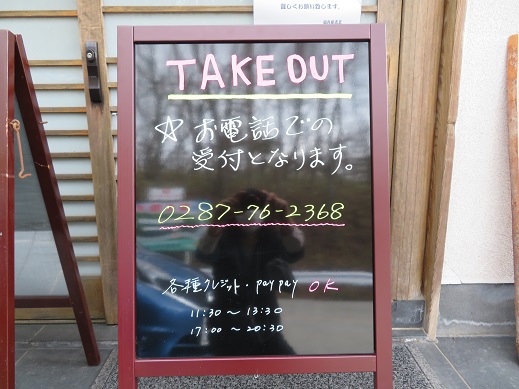 宜しくお願い致します。
TAKE OUT
☆お電話での
受付となります。
0287-76-2368
各種クレジット・paypay OK
11:30～13:30
17:00～20:30